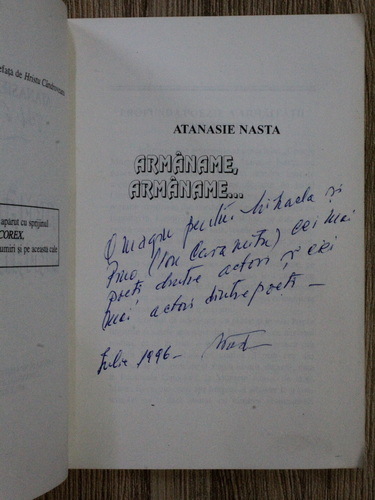 efața de Hristu Cândroveanu
aparut cu sprijinul
COREX,
umiri și pe aceasta cale
ATANASIE NASTA
ARMÂNAME,
ARMÂNAME...
Omagiu pentru Mihaela și
Pino (Ion Caramitru) cei mai
poeți dintre actori și cei
mai actori dintre poeți –
Iulie 1996 –